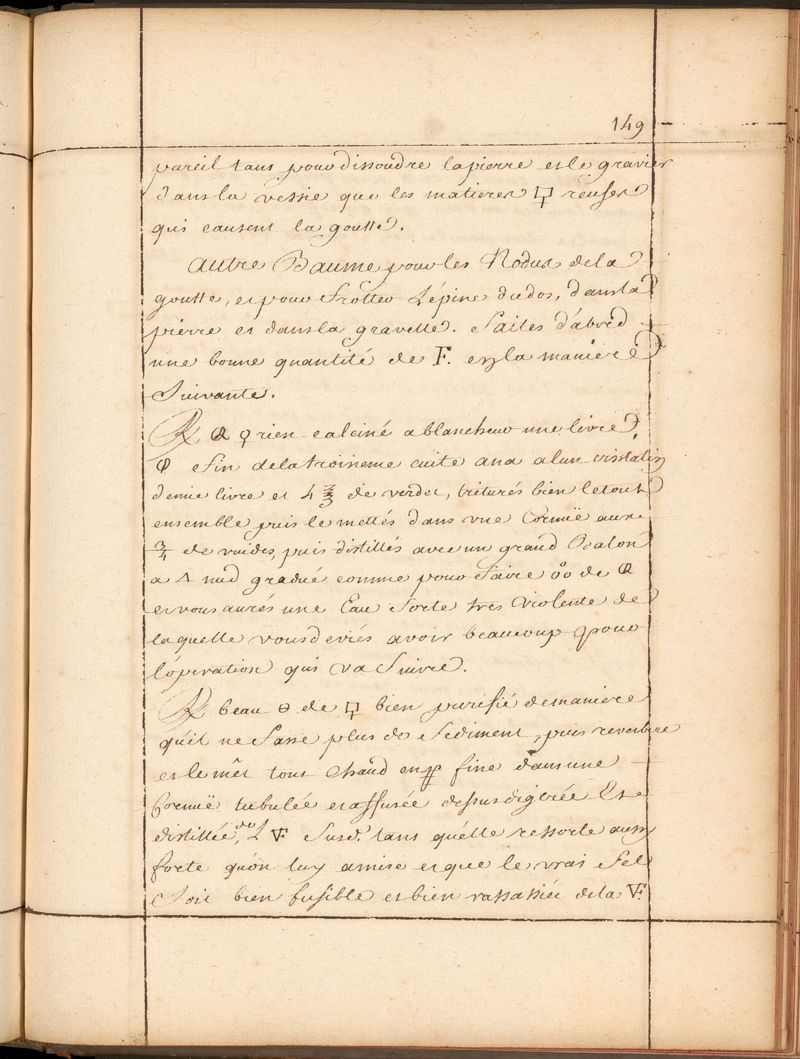 149
pareil tans pour dissoudre la pierre et le gravier
dans la vessie que les matieres 🜿 reuses
qui causent la goutte.
Autre Baume pour les Nodus de la
goutte, et pour frotter L'épine du dos, dans la
pierre et dans la gravelle. faites d'abord
une bonne quantité de F. en la maniere
Suivante.
℞ 🜕 ♀ rien calciné a blancheur une livre,
🜕 efin de la troisieme cuite ana alun cristalin
demie livre et 4 ℥ de verdet, triturés bien le tout
ensemble puis le mettés dans une Cornuë aux
3/4 de vuides, puis distillés avec un grand Balon
a 🜂 nud gradué comme pour faire de 🜕
et vous aurés une Eau forte tres violente de
laquelle vous deviés avoir beaucoup pour
l'opération qui va Suivre.
℞ beau 🜔 de 🜿 bien purifié de maniere
qu'il ne fasse plus de sediment, puis reverbere
et le mêt tout chaud en fine dans une
Cornuë tubulée et affusée dessus digerée Et
distillée, de L 🜄 Susd. tans qu'elle ressorte aussy
forte qu'on luy a mise et que le vrai Sel
Soit bien fusible et bien rassasiée de la 🜄